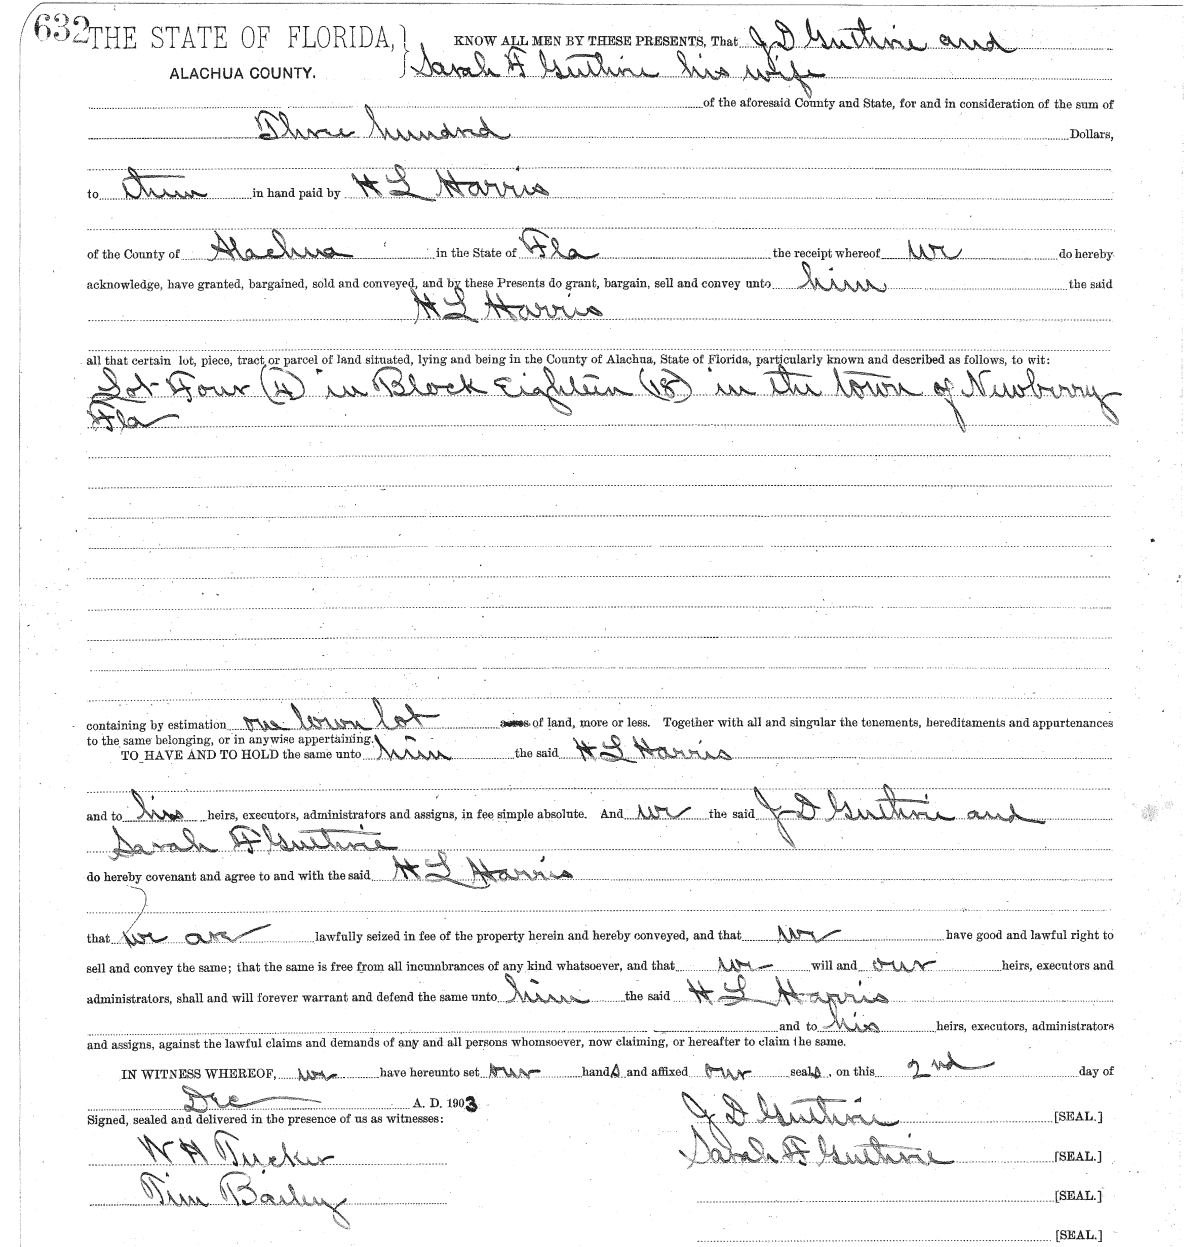 632 THE STATE OF FLORIDA, KNOW ALL MEN BY THESE PRESENTS, That J D Guthrie and
ALACHUA COUNTY. Sarah F Guthrie his wife
of the aforesaid County and State, for and in consideration of the sum of
Three hundred Dollars,
to them in hand paid by H L Harris
of the County of Alachua in the State of Fla the receipt whereof we do hereby
acknowledge, have granted, bargained, sold and conveyed, and by these Presents do grant, bargain, sell and convey unto him the said
H L Harris
all that certain lot, piece, tract or parcel of land situated, lying and being in the County of Alachua, State of Florida, particularly known and described as follows, to wit:
Lot Four (4) in Block Eighteen (18) in the town of Newberry
Fla
containing by estimation one town lot acres of land, more or less. Together with all and singular the tenements, hereditaments and appurtenances
to the same belonging, or in anywise appertaining.
TO HAVE AND TO HOLD the same unto him the said H L Harris
and to his heirs, executors, administrators and assigns, in fee simple absolute. And we the said J D Guthrie and
Sarah F Guthrie
do hereby covenant and agree to and with the said H L Harris
that we are lawfully seized in fee of the property herein and hereby conveyed, and that we have good and lawful right to
sell and convey the same; that the same is free from all incumbrances of any kind whatsoever, and that we will and our heirs, executors and
administrators, shall and will forever warrant and defend the same unto him the said H L Harris
and to his heirs, executors, administrators
and assigns, against the lawful claims and demands of any and all persons whomsoever, now claiming, or hereafter to claim the same.
IN WITNESS WHEREOF, we have hereunto set our hands and affixed our seals, on this 2nd day of
Dec A. D. 1903
Signed, sealed and delivered in the presence of us as witnesses: J D Guthrie [SEAL.]
W H Tucker Sarah F Guthrie [SEAL.]
Tim Barley [SEAL.]
[SEAL.]